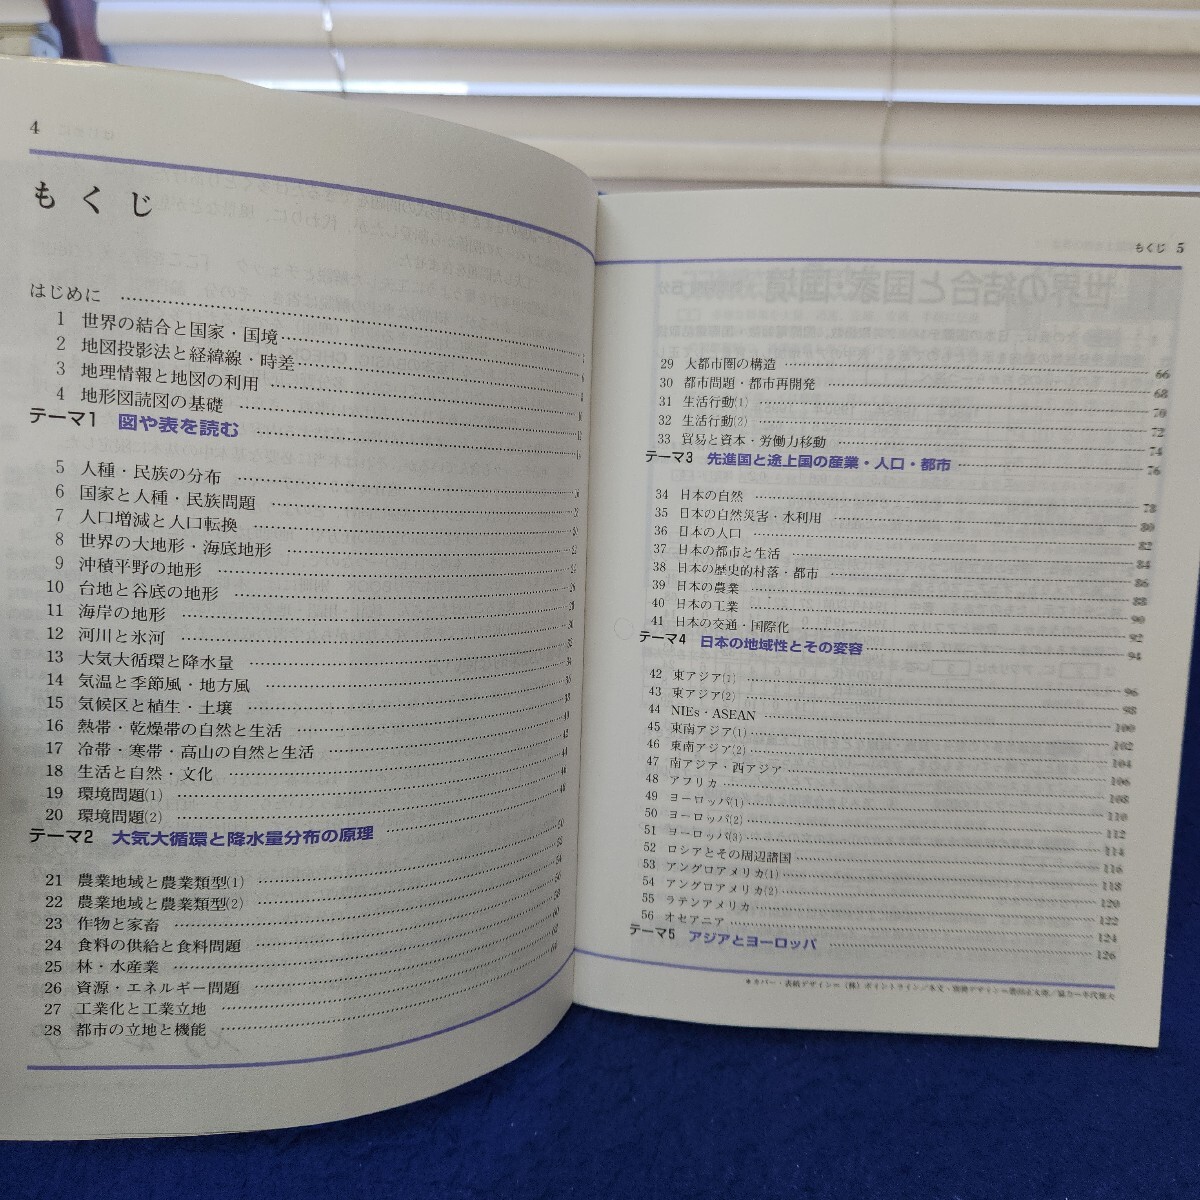 4
もくじ
はじめに
1 世界の結合と国家・国境
2 地図投影法と経緯線・時差
3 地理情報と地図の利用
4 地形図読図の基礎
テーマ1 図や表を読む
5 人種・民族の分布
6 国家と人種・民族問題
7 人口増減と人口転換
8 世界の大地形・海底地形
9 沖積平野の地形
10 台地と谷底の地形
11 海岸の地形
12 河川と氷河
13 大気大循環と降水量
14 気温と季節風・地方風
15 気候区と植生・土壌
16 熱帯・乾燥帯の自然と生活
17 冷帯・寒帯・高山の自然と生活
18 生活と自然・文化
19 環境問題(1)
20 環境問題(2)
テーマ2 大気大循環と降水量分布の原理
21 農業地域と農業類型(1)
22 農業地域と農業類型(2)
23 作物と家畜
24 食料の供給と食料問題
25 林・水産業
26 資源・エネルギー問題
27 工業化と工業立地
28 都市の立地と機能
もくじ 5
29 大都市圏の構造 66
30 都市問題・都市再開発 68
31 生活行動(1) 70
32 生活行動(2) 72
33 貿易と資本・労働力移動 74
テーマ3 先進国と途上国の産業・人口・都市 76
34 日本の自然 78
35 日本の自然災害・水利用 80
36 日本の人口 82
37 日本の都市と生活 84
38 日本の歴史的村落・都市 86
39 日本の農業 88
40 日本の工業 90
41 日本の交通・国際化 92
テーマ4 日本の地域性とその変容 94
42 東アジア(1) 96
43 東アジア(2) 98
44 NIEs・ASEAN 100
45 東南アジア(1) 102
46 東南アジア(2) 104
47 南アジア・西アジア 106
48 アフリカ 108
49 ヨーロッパ(1) 110
50 ヨーロッパ(2) 112
51 ヨーロッパ(3) 114
52 ロシアとその周辺諸国 116
53 アングロアメリカ(1) 118
54 アングロアメリカ(2) 120
55 ラテンアメリカ 122
56 オセアニア 124
テーマ5 アジアとヨーロッパ 126
＊カバー・表紙デザイン＝(株)ポイントライン／本文・